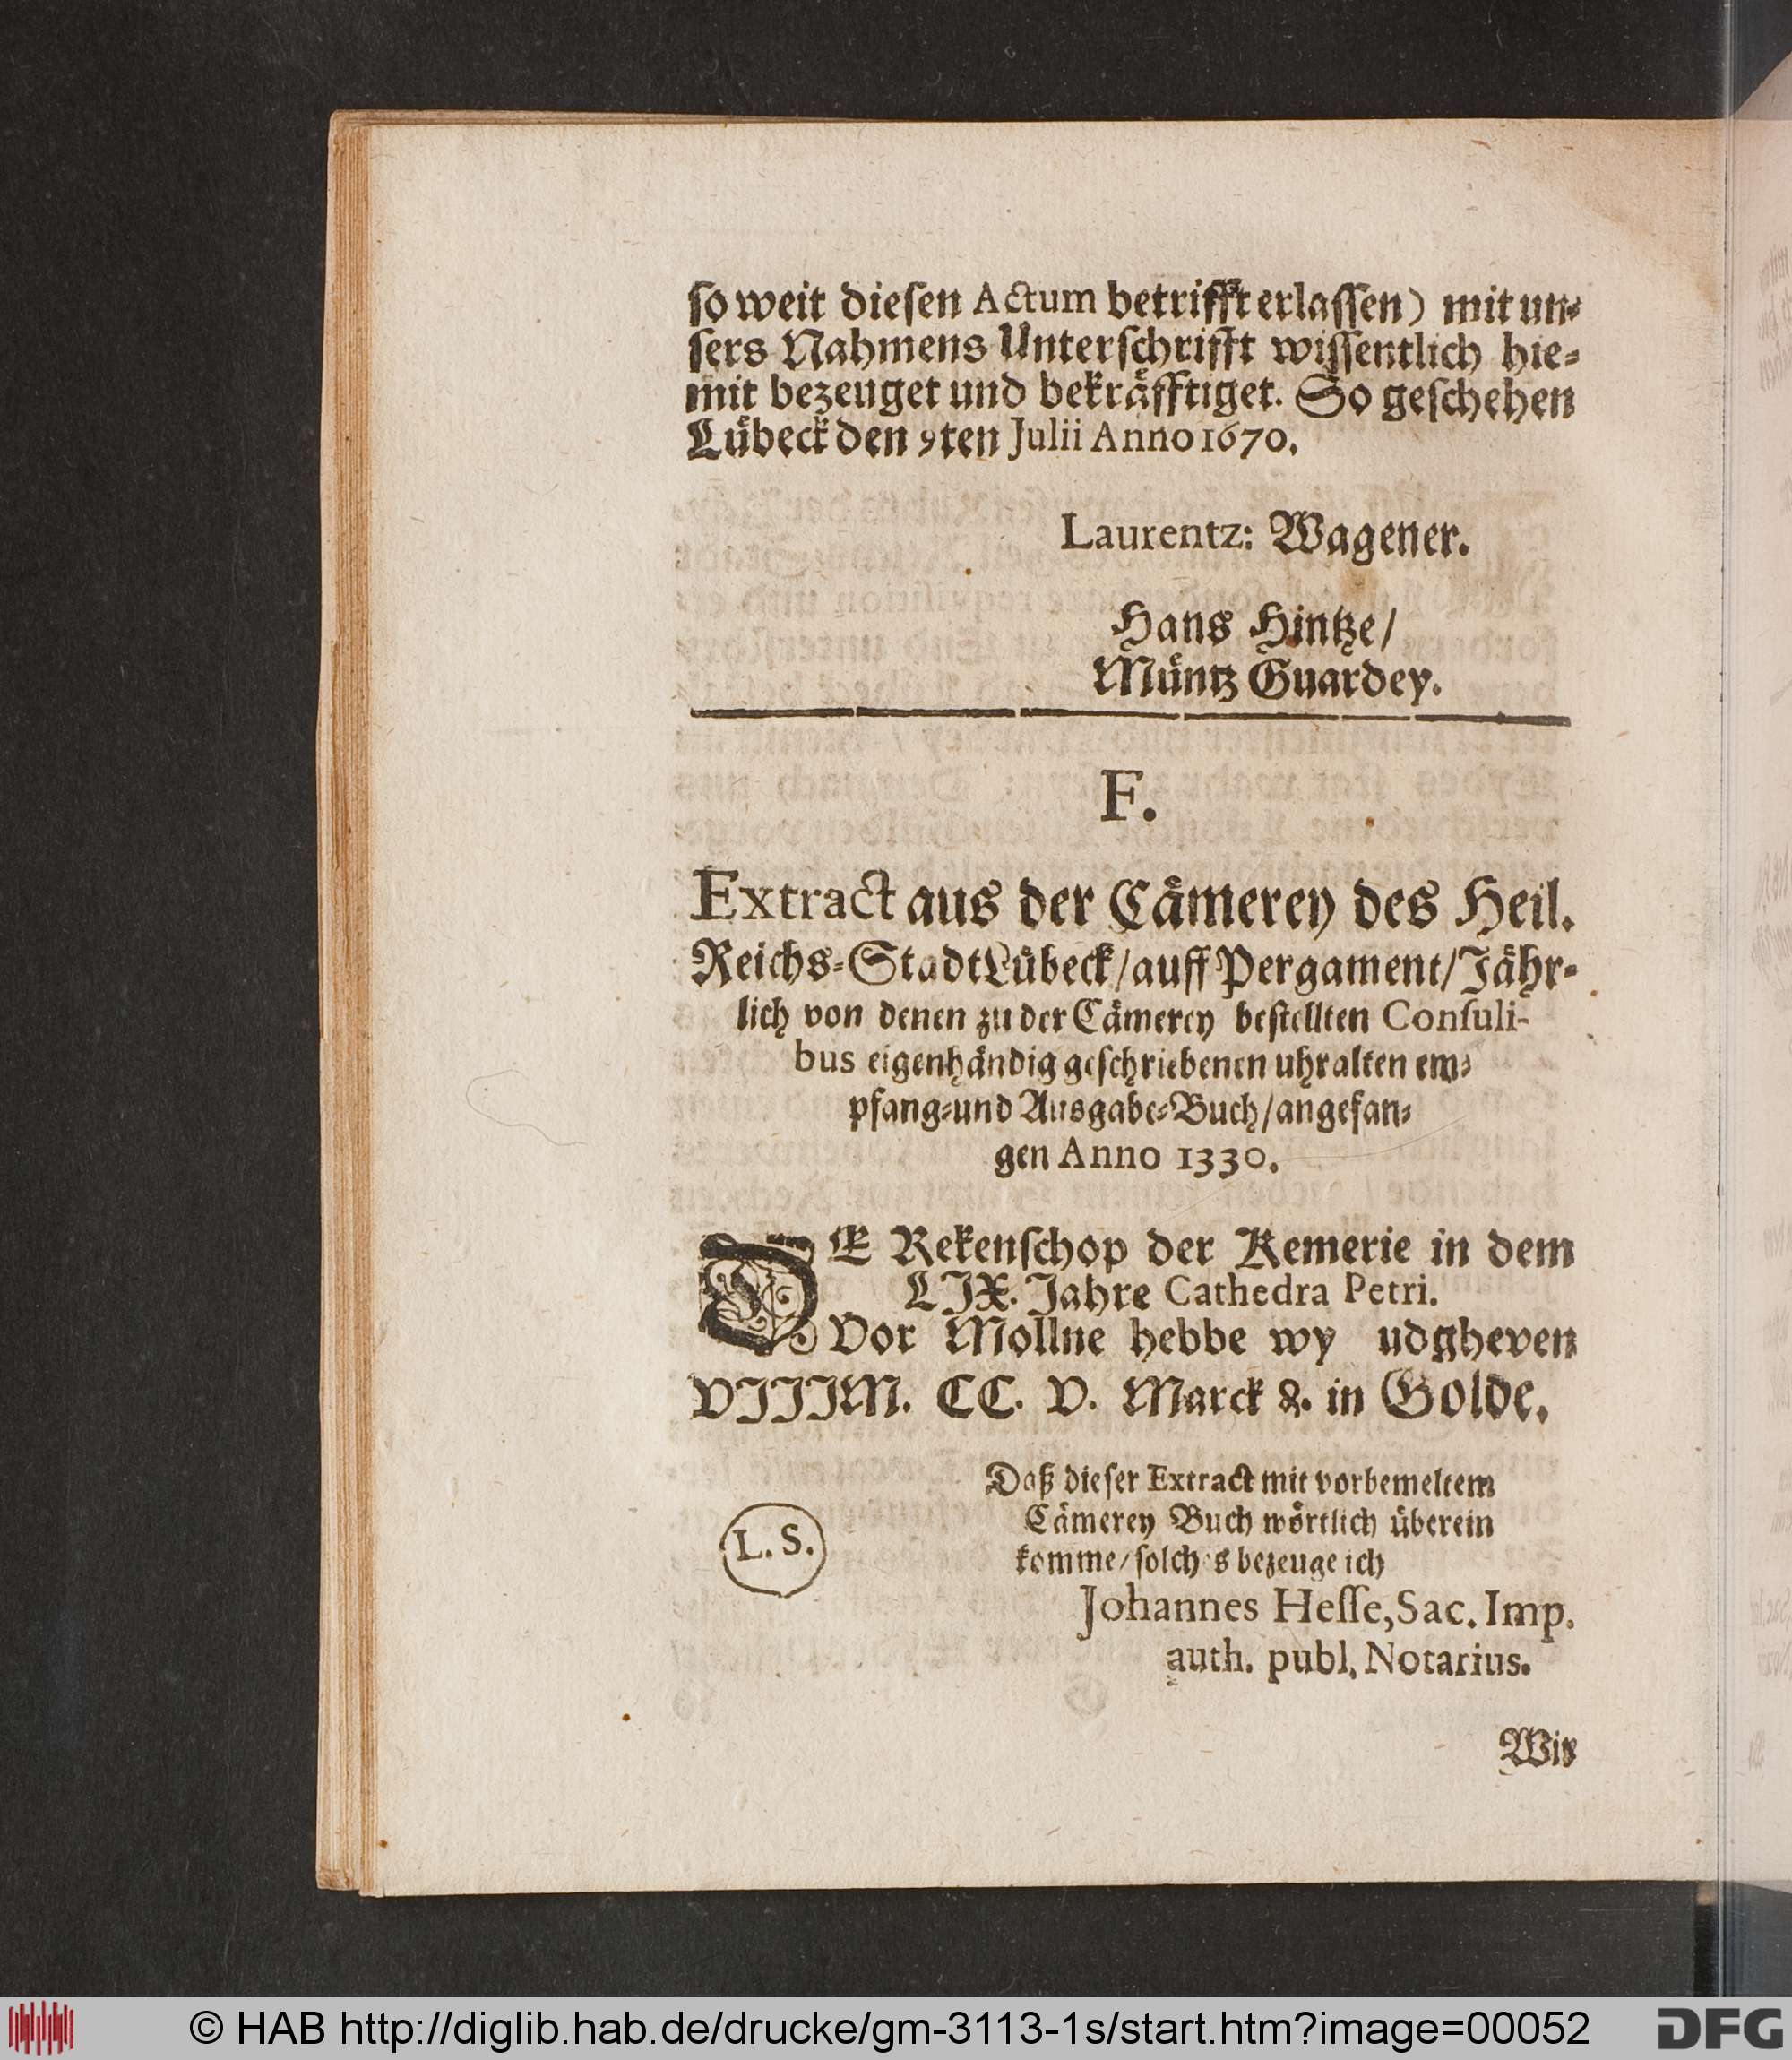 so weit diesen Actum betrifft erlassen) mit un-
sers Nahmens Unterschrifft wissentlich hie-
mit bezeuget und bekräfftiget. So geschehen
Lübeck den 9ten Julii Anno 1670.
Laurentz: Wagener.
Hans Hintze/
Müntz Guardey.
F.
Extract aus der Cämerey des Heil.
Reichs-Stadt Lübeck/auff Pergament/Jähr-
lich von denen zu der Cämerey bestellten Consuli-
bus eigenhändig geschriebenen uhralten em-
pfang-und Ausgabe-Buch/angefan-
gen Anno 1330.
DE Rekenschop der Kemerie in dem
LIX. Jahre Cathedra Petri.
Vor Mollne hebbe wy udgheven
VIIIM. CC. V. Marck &. in Golde.
Daß dieser Extract mit vorbemeltem
Cämerey Buch wörtlich überein
komme/solches bezeuge ich
L. S.
Johannes Hesse, Sac. Imp.
auth. publ. Notarius.
Wir
© HAB http://diglib.hab.de/drucke/gm-3113-1s/start.htm?image=00052
DFG